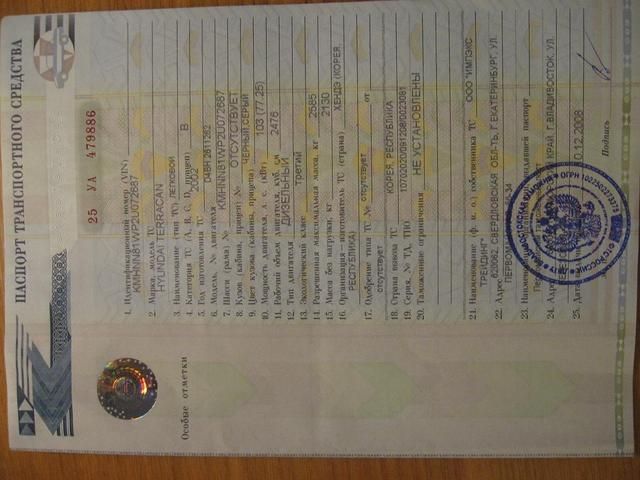 ПАСПОРТ ТРАНСПОРТНОГО СРЕДСТВА
25 УА 479886
1. Идентификационный номер (VIN)
KMHNN81WP2U072687
2. Марка, модель ТС
HYUNDAI TERRACAN
3. Наименование (тип ТС) ЛЕГКОВОЙ
4. Категория ТС (А, В, С, D, прицеп) B
5. Год изготовления ТС 2002
6. Модель, № двигателя
7. Шасси (рама) № KMHNN81WP2U072687
8. Кузов (кабина, прицеп) № ОТСУТСТВУЕТ
9. Цвет кузова (кабины, прицепа) ЧЕРНЫЙ,СЕРЫЙ
10. Мощность двигателя, л. с. (кВт) 103 (77.25)
11. Рабочий объем двигателя, куб. см 2476
12. Тип двигателя ДИЗЕЛЬНЫЙ
13. Экологический класс третий
14. Разрешенная максимальная масса, кг 2585
15. Масса без нагрузки, кг 2130
16. Организация-изготовитель ТС (страна) ХЕНДЭ (КОРЕЯ,
РЕСПУБЛИКА)
17. Одобрение типа ТС № отсутствует от
отсутствует
18. Страна вывоза ТС КОРЕЯ, РЕСПУБЛИКА
19. Серия, № ТД, ТПО
20. Таможенные ограничения НЕ УСТАНОВЛЕНЫ
21. Наименование (ф. и. о.) собственника ТС ООО "ИМПЭКС
ТРЕЙДИНГ"
22. Адрес 620062, СВЕРДЛОВСКАЯ ОБЛ-ТЬ, Г.ЕКАТЕРИНБУРГ, УЛ.
23. паспорт
24. Адрес КРАЙ, Г.ВЛАДИВОСТОК, УЛ.
25. 10.12.2008
Подпись
Особые отметки